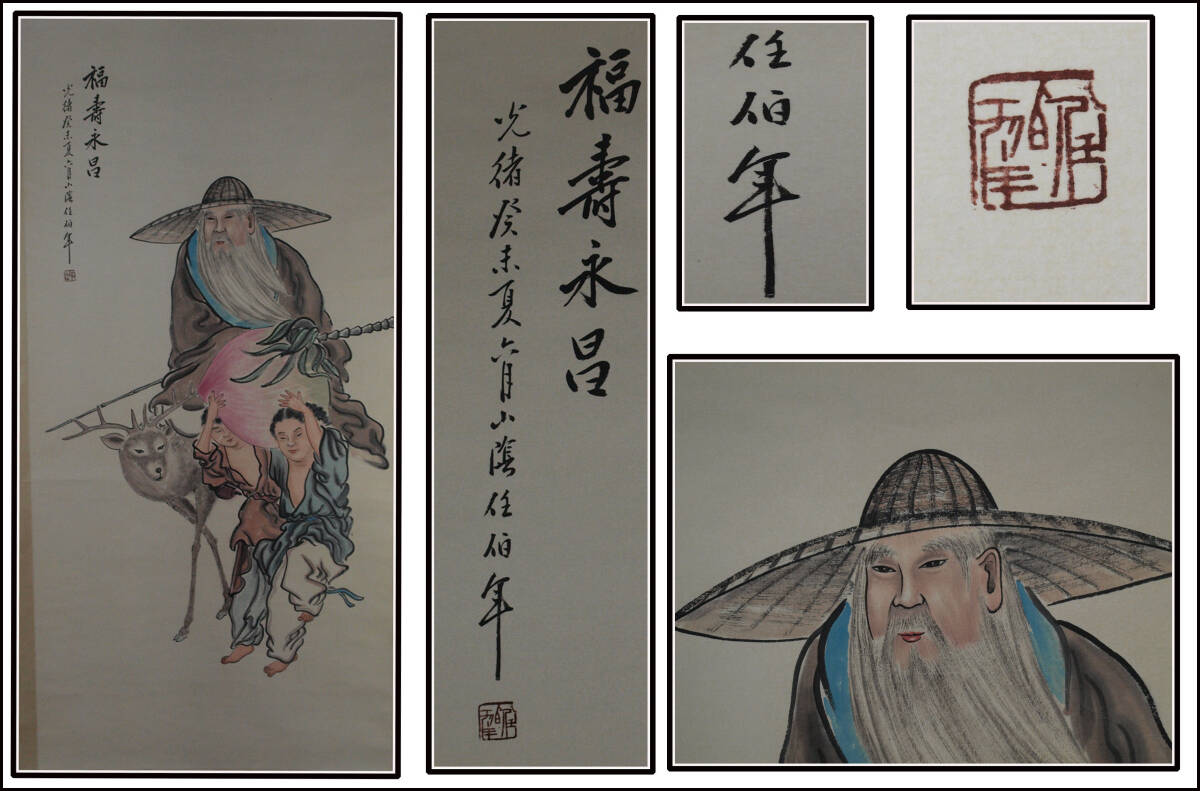 福壽永昌
光緒癸未夏六月山陰任伯年
福壽永昌
光緒癸未夏六月山陰任伯年
任伯年